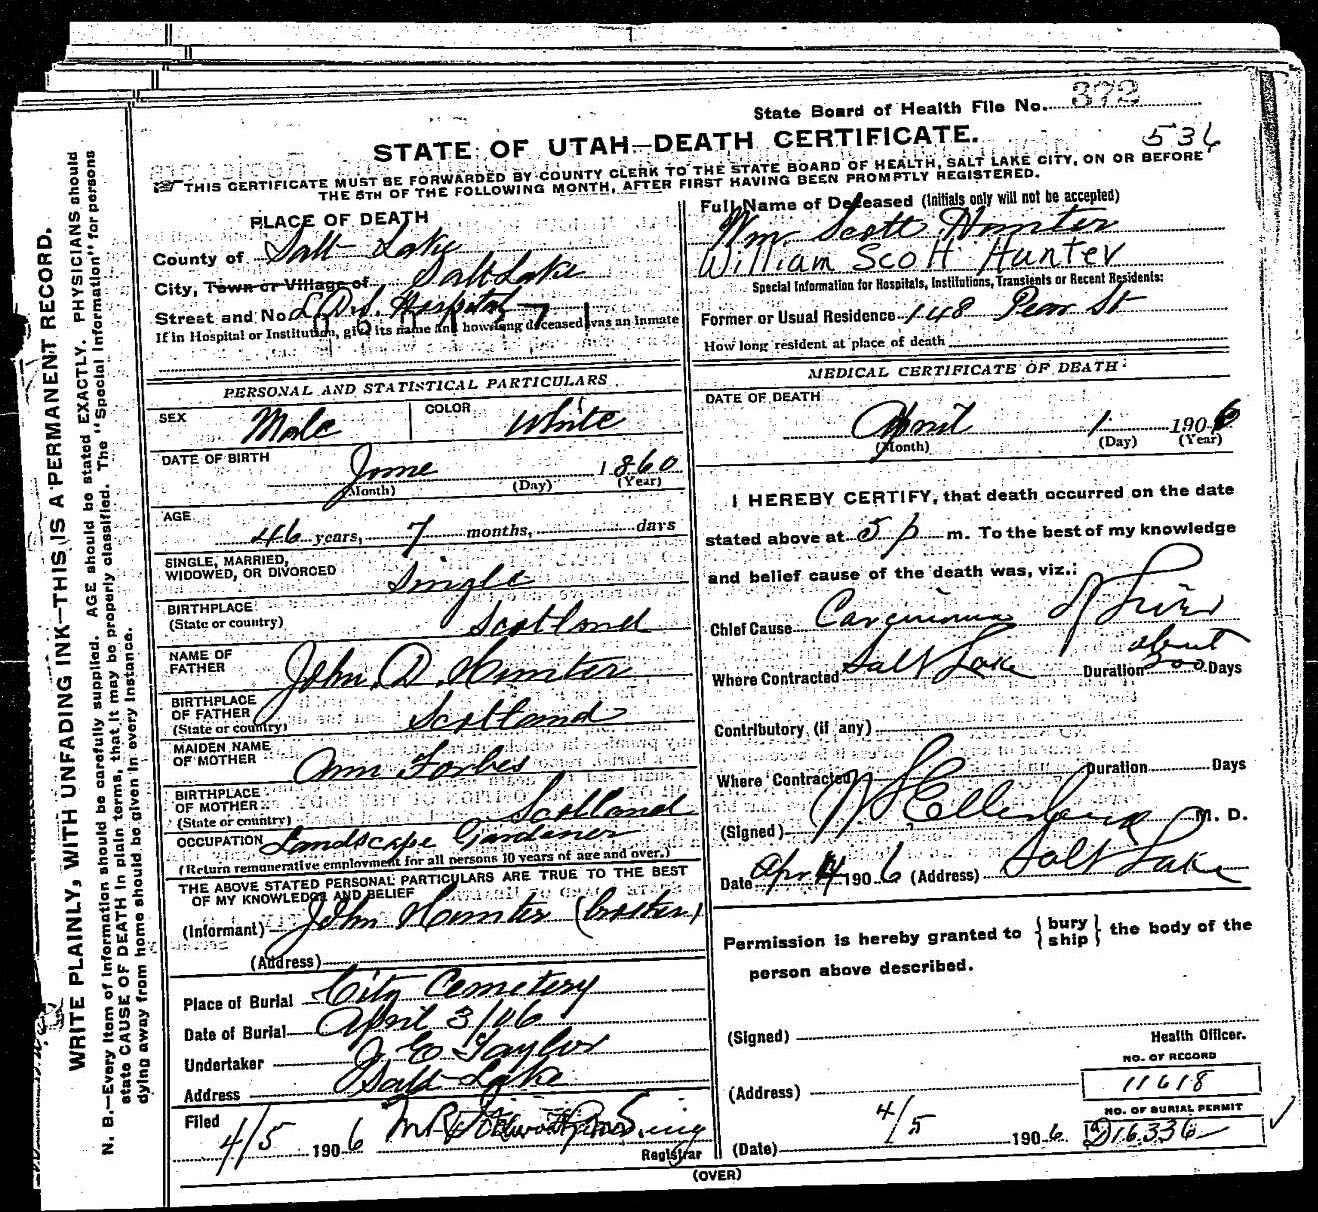 State Board of Health File No. 372
STATE OF UTAH—DEATH CERTIFICATE.
536
THIS CERTIFICATE MUST BE FORWARDED BY COUNTY CLERK TO THE STATE BOARD OF HEALTH, SALT LAKE CITY, ON OR BEFORE
THE 5TH OF THE FOLLOWING MONTH, AFTER FIRST HAVING BEEN PROMPTLY REGISTERED.
WRITE PLAINLY, WITH UNFADING INK—THIS IS A PERMANENT RECORD.
N. B.—Every item of information should be carefully supplied. AGE should be stated EXACTLY. PHYSICIANS should
state CAUSE OF DEATH in plain terms, that it may be properly classified. The "Special Information" for persons
dying away from home should be given in every instance.
PLACE OF DEATH
County of Salt Lake
City, Town or Village of Salt Lake
Street and No. L.D.S. Hospital
If in Hospital or Institution, give its name and how long deceased was an inmate
PERSONAL AND STATISTICAL PARTICULARS
SEX Male COLOR White
DATE OF BIRTH June 1860
(Month) (Day) (Year)
AGE 46 years, 7 months, days
SINGLE, MARRIED,
WIDOWED, OR DIVORCED Single
BIRTHPLACE
(State or country) Scotland
NAME OF
FATHER John D. Hunter
BIRTHPLACE
OF FATHER
(State or country) Scotland
MAIDEN NAME
OF MOTHER Ann Forbes
BIRTHPLACE
OF MOTHER
(State or country) Scotland
OCCUPATION Landscape Gardener
(Return remunerative employment for all persons 10 years of age and over.)
THE ABOVE STATED PERSONAL PARTICULARS ARE TRUE TO THE BEST
OF MY KNOWLEDGE AND BELIEF
(Informant) John Hunter (brother)
(Address)
Place of Burial City Cemetery
Date of Burial April 3/06
Undertaker J E Taylor
Address Salt Lake
Filed
4/5 1906
Registrar
Full Name of Deceased (Initials only will not be accepted)
Wm. Scott Hunter
William Scott Hunter
Special Information for Hospitals, Institutions, Transients or Recent Residents:
Former or Usual Residence 148 Pear St
How long resident at place of death
MEDICAL CERTIFICATE OF DEATH
DATE OF DEATH
April 1 1906
(Month) (Day) (Year)
I HEREBY CERTIFY, that death occurred on the date
stated above at 5 p m. To the best of my knowledge
and belief cause of the death was, viz.:
Chief Cause Carcinoma of Liver
Where Contracted Salt Lake Duration about 300 Days
Contributory (if any)
Where Contracted Duration Days
(Signed) M. D.
Date Apr 4 1906 (Address) Salt Lake
Permission is hereby granted to { bury ship } the body of the
person above described.
(Signed)
Health Officer.
NO. OF RECORD
11618
(Address)
NO. OF BURIAL PERMIT
D16336
(Date) 4/5 1906
(OVER)